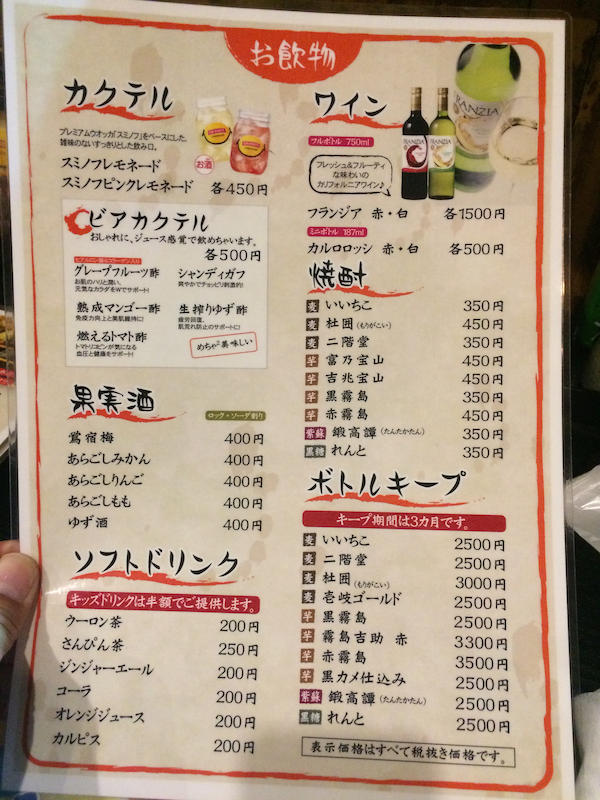 お飲物
カクテル
プレミアムウオッカ「スミノフ」をベースにした、
雑味のないすっきりとした飲み口。
お酒
スミノフレモネード
スミノフピンクレモネード 各450円
ビアカクテル
おしゃれに、ジュース感覚で飲めちゃいます。
各500円
ヒアルロン酸&コラーゲン入り
グレープフルーツ酢
お肌のハリと潤い、
元気なカラダをWでサポート!
シャンディガフ
爽やかでチョッピリ刺激的!
熟成マンゴー酢
免疫力向上と美肌維持に!
生搾りゆず酢
疲労回復、
肌荒れ防止のサポートに!
燃えるトマト酢
トマトリコピンが気になる
血圧と健康をサポート!
めちゃ²美味しい
果実酒
ロック・ソーダ割り
鶯宿梅 400円
あらごしみかん 400円
あらごしりんご 400円
あらごしもも 400円
ゆず酒 400円
ソフトドリンク
キッズドリンクは半額でご提供します。
ウーロン茶 200円
さんぴん茶 250円
ジンジャーエール 200円
コーラ 200円
オレンジジュース 200円
カルピス 200円
ワイン
フルボトル 750ml
フレッシュ&フルーティ
な味わいの
カリフォルニアワイン♪
FRANZIA
FRANZIA
FRANZIA
フランジア 赤・白 各1500円
ミニボトル 187ml
カルロロッシ 赤・白 各500円
焼酎
麦 いいちこ 350円
麦 杜囲(もりがこい) 450円
麦 二階堂 350円
芋 富乃宝山 450円
芋 吉兆宝山 450円
芋 黒霧島 350円
芋 赤霧島 450円
紫蘇 鍛高譚(たんたかたん) 350円
黒糖 れんと 350円
ボトルキープ
キープ期間は3カ月です。
麦 いいちこ 2500円
麦 二階堂 2500円
麦 杜囲(もりがこい) 3000円
麦 壱岐ゴールド 2500円
芋 黒霧島 2500円
芋 霧島吉助 赤 3300円
芋 赤霧島 3500円
芋 黒カメ仕込み 2500円
紫蘇 鍛高譚(たんたかたん) 2500円
黒糖 れんと 2500円
表示価格はすべて税抜き価格です。